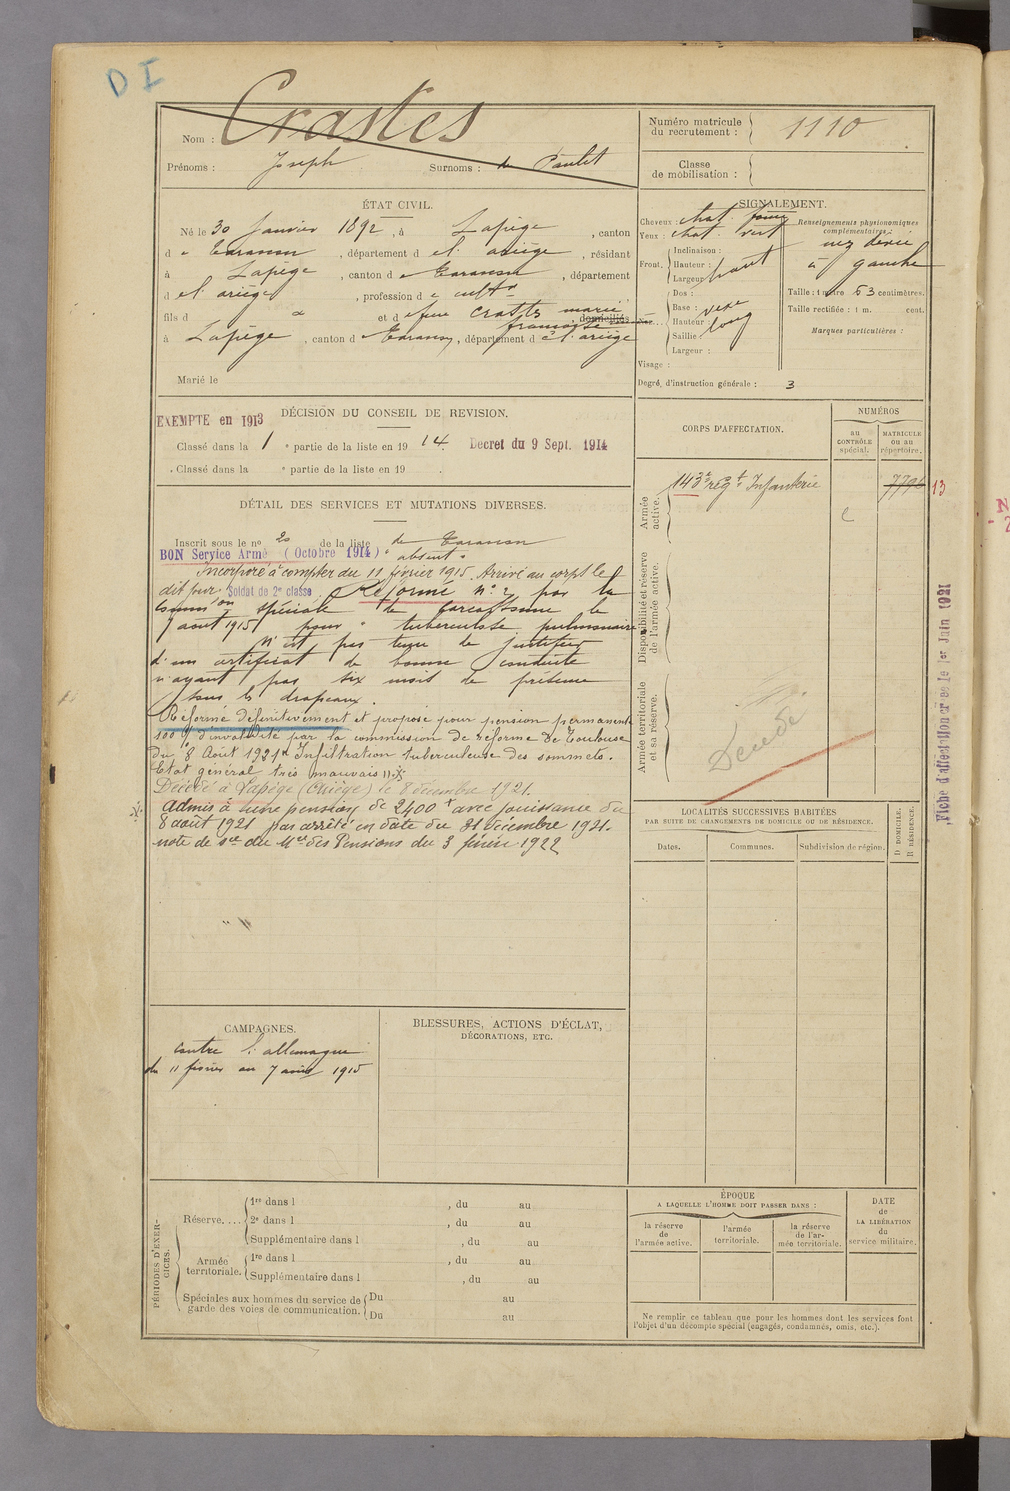 D I
Nom : Crastes
Prénoms : Joseph Surnoms : de Paulet
Numéro matricule
du recrutement : 1110
Classe
de mobilisation :
ÉTAT CIVIL.
Né le 30 Janvier 1892, à Lapège, canton
d e Tarascon, département d e l'ariège, résidant
à Lapège, canton d e Tarascon, département
d e l'ariège, profession d e cultr
fils d et d e feue Crastes marie
françoise domiciliés
à Lapège, canton d e Tarascon, département d e l'ariège
Marié le
SIGNALEMENT.
Cheveux : chat. foncé
Yeux : chat. vert
Front. Inclinaison :
Hauteur : haut
Largeur :
Nez Dos :
Base : vexe
Hauteur : long
Saillie :
Largeur :
Visage :
Renseignements physionomiques
complémentaires :
nez dévié
à gauche
Taille : 1 mètre 53 centimètres.
Taille rectifiée : 1 m. cent.
Marques particulières :
Degré d'instruction générale : 3
DÉCISION DU CONSEIL DE REVISION.
EXEMPTE en 1913
Classé dans la 1 e partie de la liste en 1914. Decret du 9 Sept. 1914
Classé dans la e partie de la liste en 19 .
DÉTAIL DES SERVICES ET MUTATIONS DIVERSES.
Inscrit sous le no 20 de la liste de Tarascon
BON Service Armé (Octobre 1914) "absent"
Incorporé à compter du 11 février 1915. Arrivé au corps le
dit jour. Soldat de 2e classe. Réformé no 2 par la
common spéciale de Carcassonne le
7 août 1915 pour "tuberculose pulmonaire"
N'est pas tenu de justifier
d'un certificat de bonne conduite
n'ayant pas six mois de présence
sous les drapeaux.
Réformé définitivement et proposé pour pension permanente
100 % d'invalidité par la commission de réforme de Toulouse
du 8 Août 1921 Infiltration tuberculeuse des sommets.
Etat général très mauvais
Décédé à Lapège (Ariège) le 8 décembre 1921.
Admis à une pension de 2400 f avec jouissance du
8 août 1921 par arrêté en date du 31 décembre 1921.
note de sce du Mre des Pensions du 3 février 1922
CORPS D'AFFECTATION.
NUMÉROS
au
CONTRÔLE
spécial.
MATRICULE
ou au
répertoire.
Armée
active.
143e régt Infanterie 7796 13
Disponibilité et réserve
de l'armée active.
Armée territoriale
et sa réserve.
Décédé
Fiche d'affectation créée le 1er Juin 1921
LOCALITÉS SUCCESSIVES HABITÉES
PAR SUITE DE CHANGEMENTS DE DOMICILE OU DE RÉSIDENCE.
Dates. Communes. Subdivision de région.
D DOMICILE.
R RÉSIDENCE.
CAMPAGNES.
contre l'allemagne
du 11 février au 7 août 1915
BLESSURES, ACTIONS D'ÉCLAT,
DÉCORATIONS, ETC.
PÉRIODES D'EXER-
CICES.
Réserve.... 1re dans l , du au
2e dans l , du au
Supplémentaire dans l , du au
Armée
territoriale. 1re dans l , du au
Supplémentaire dans l , du au
Spéciales aux hommes du service de
garde des voies de communication. Du au
Du au
ÉPOQUE
A LAQUELLE L'HOMME DOIT PASSER DANS :
la réserve
de
l'armée active.
l'armée
territoriale.
la réserve
de l'ar-
mée territoriale.
DATE
de
LA LIBÉRATION
du
service militaire.
Ne remplir ce tableau que pour les hommes dont les services font
l'objet d'un décompte spécial (engagés, condamnés, omis, etc.).